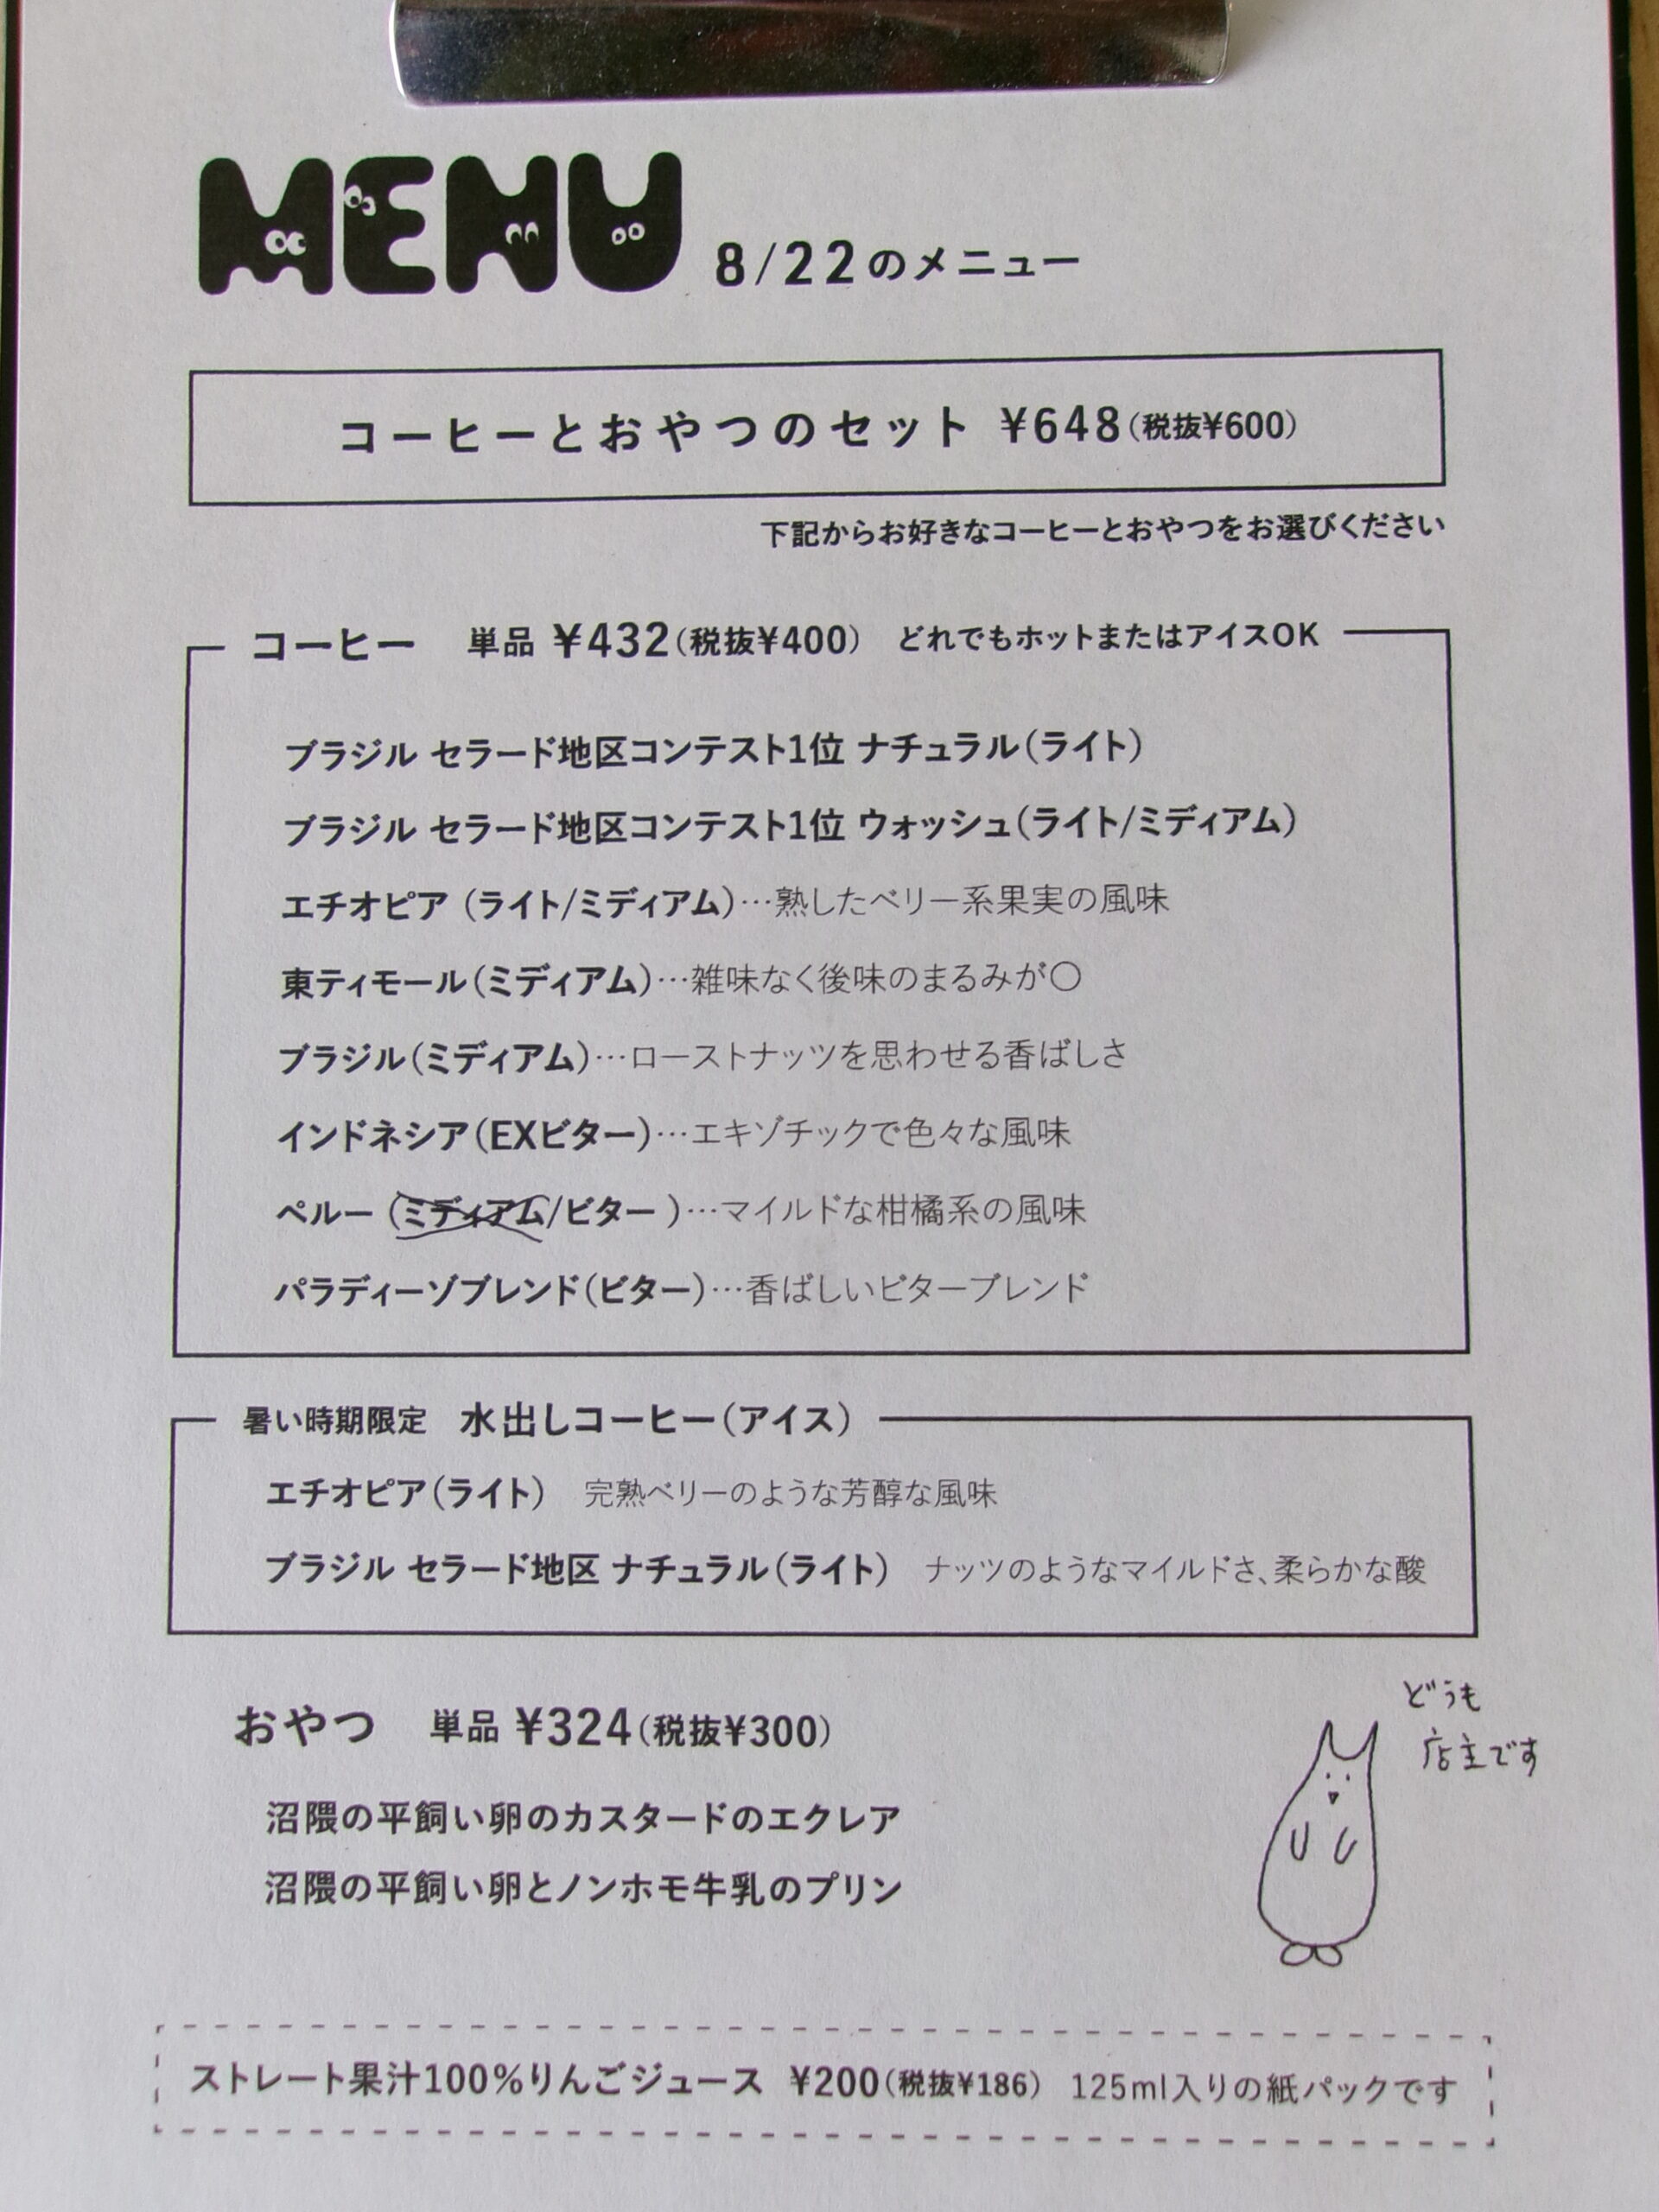 MENU 8/22のメニュー
コーヒーとおやつのセット ¥648(税抜¥600)
下記からお好きなコーヒーとおやつをお選びください
コーヒー 単品 ¥432(税抜¥400) どれでもホットまたはアイスOK
ブラジル セラード地区コンテスト1位 ナチュラル(ライト)
ブラジル セラード地区コンテスト1位 ウォッシュ(ライト/ミディアム)
エチオピア (ライト/ミディアム)…熟したベリー系果実の風味
東ティモール(ミディアム)…雑味なく後味のまるみが〇
ブラジル(ミディアム)…ローストナッツを思わせる香ばしさ
インドネシア(EXビター)…エキゾチックで色々な風味
ペルー (ミディアム/ビター )…マイルドな柑橘系の風味
パラディーゾブレンド(ビター)…香ばしいビターブレンド
暑い時期限定 水出しコーヒー(アイス)
エチオピア(ライト) 完熟ベリーのような芳醇な風味
ブラジル セラード地区 ナチュラル(ライト) ナッツのようなマイルドさ、柔らかな酸
おやつ 単品 ¥324(税抜¥300)
沼隈の平飼い卵のカスタードのエクレア
沼隈の平飼い卵とノンホモ牛乳のプリン
どうも
店主です
ストレート果汁100%りんごジュース ¥200(税抜¥186) 125ml入りの紙パックです